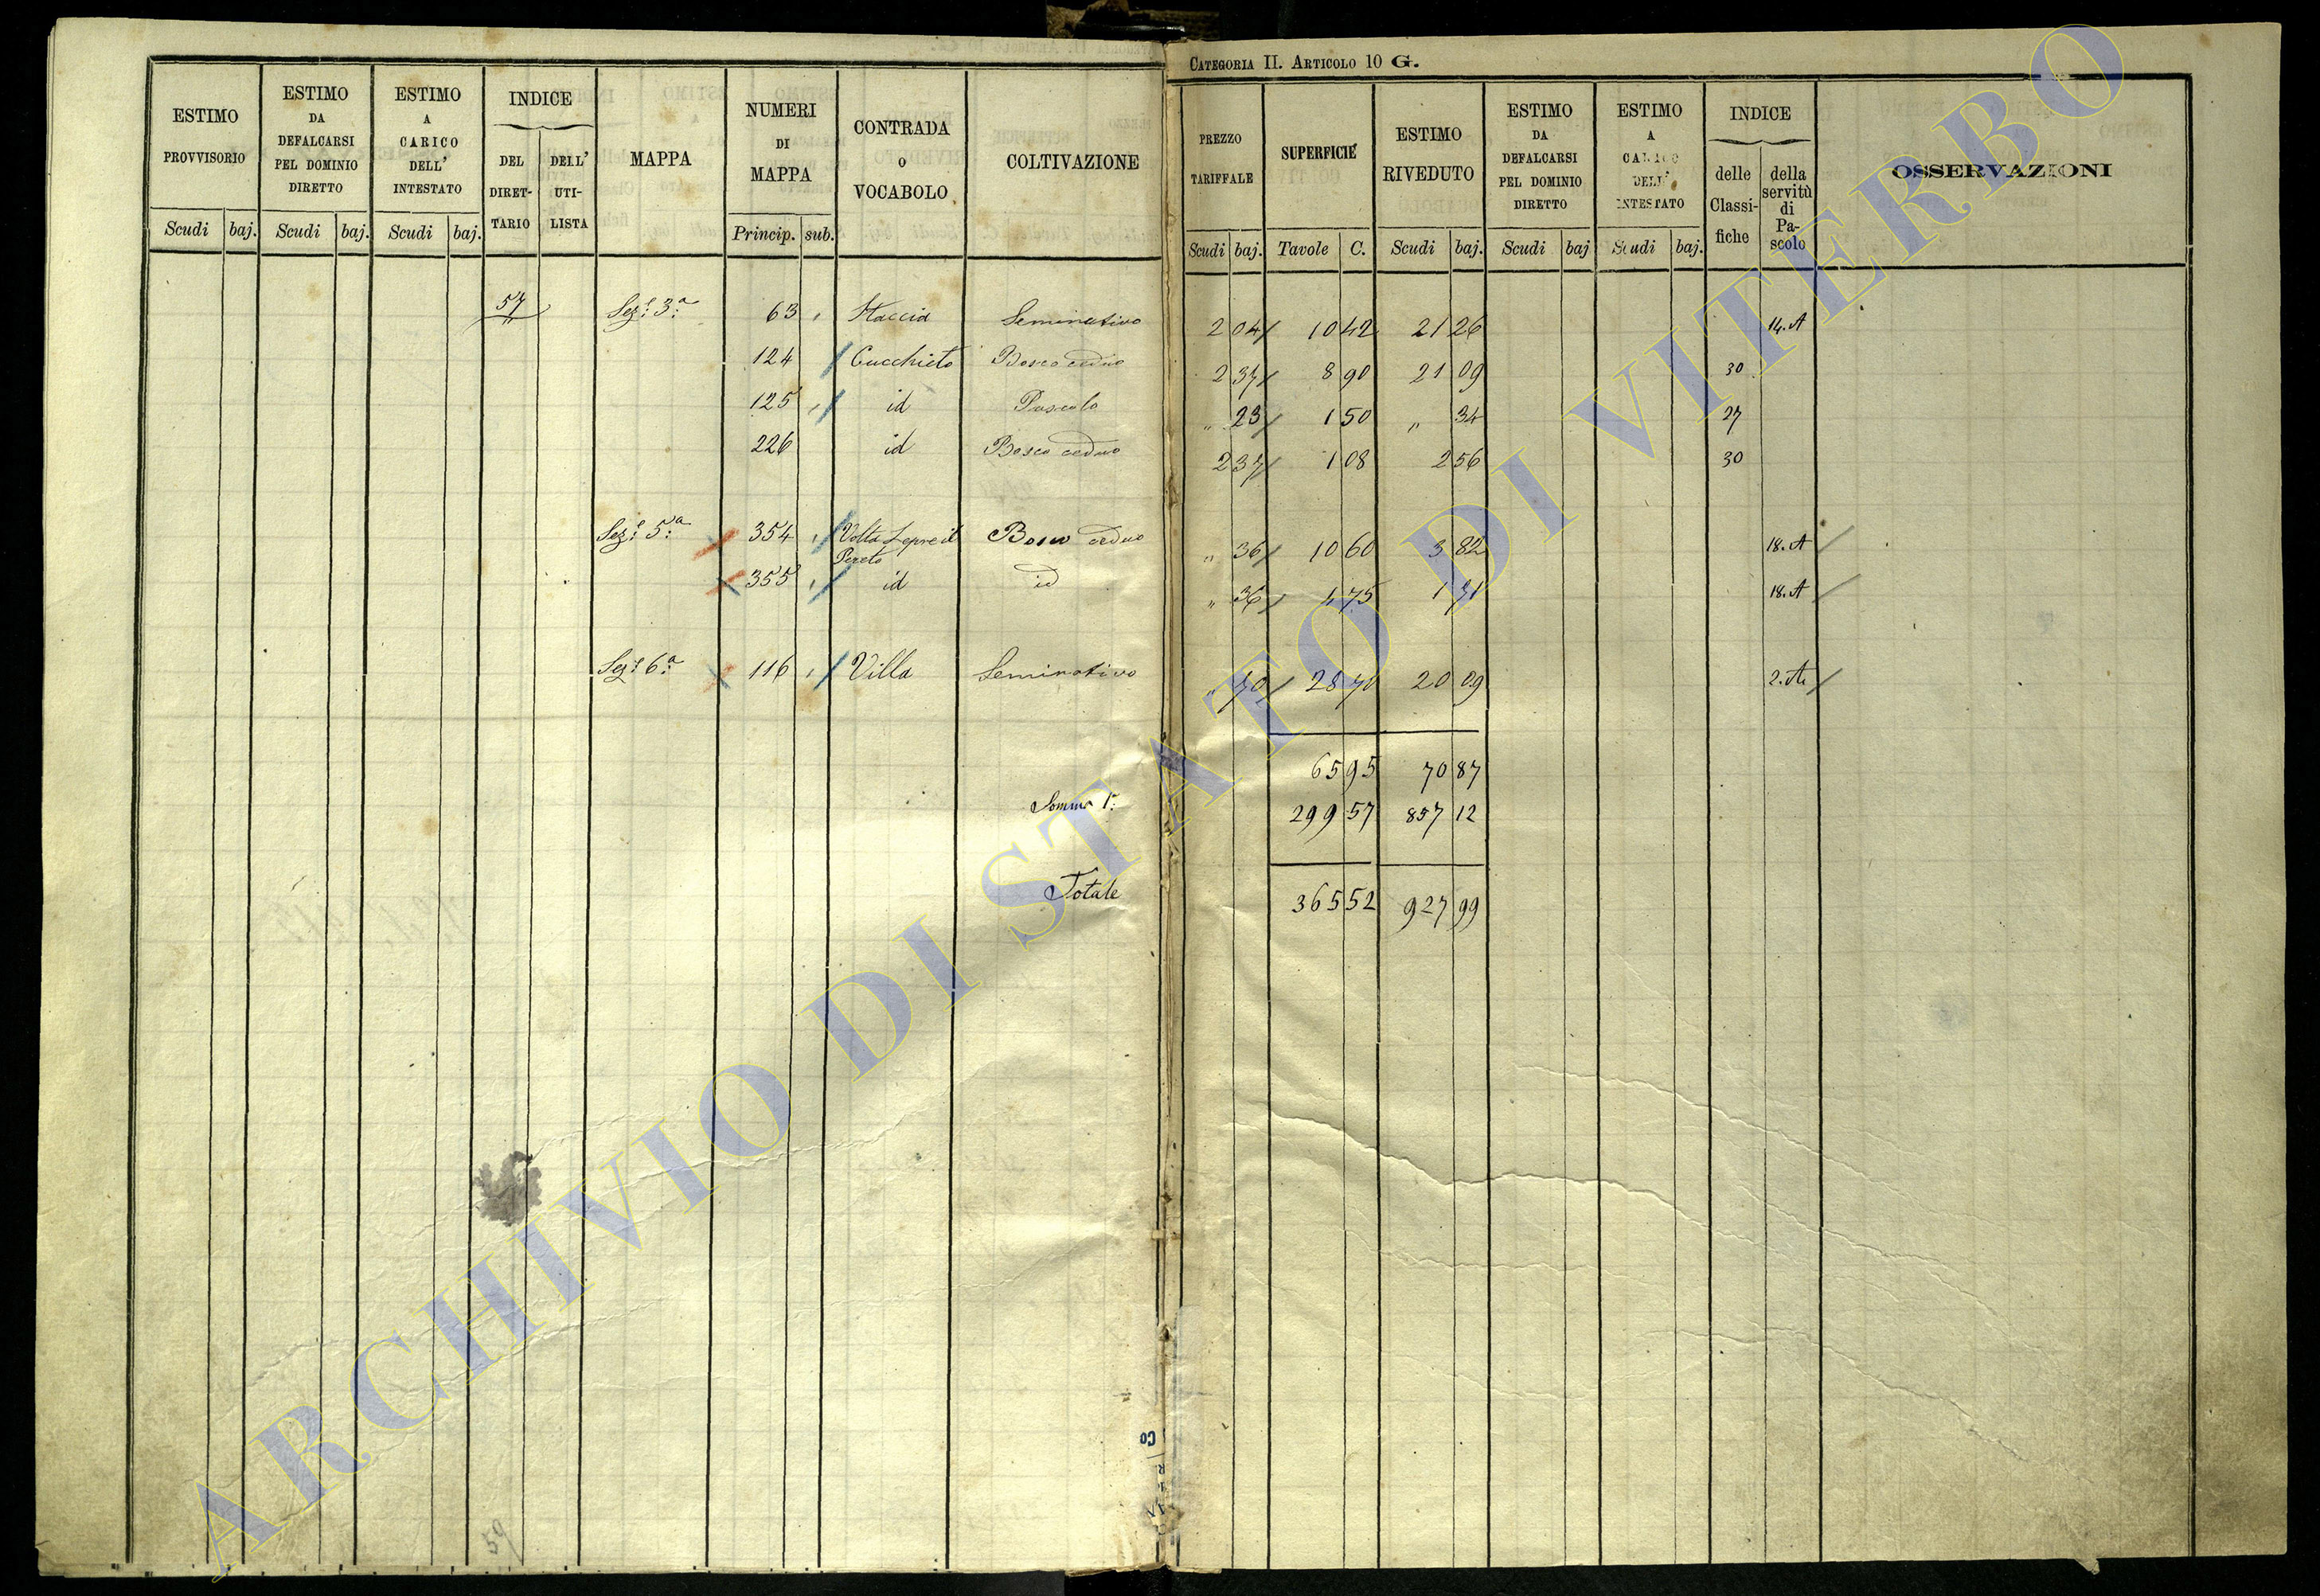 CATEGORIA II. ARTICOLO 10 G.
ESTIMO PROVVISORIO Scudi baj.
ESTIMO DA DEFALCARSI PEL DOMINIO DIRETTO Scudi baj.
ESTIMO A CARICO DELL' INTESTATO Scudi baj.
INDICE DEL DIRETTARIO DELL' UTILISTA
MAPPA
NUMERI DI MAPPA Princip. sub.
CONTRADA O VOCABOLO
COLTIVAZIONE
PREZZO TARIFFALE Scudi baj.
SUPERFICIE Tavole C.
ESTIMO RIVEDUTO Scudi baj.
ESTIMO DA DEFALCARSI PEL DOMINIO DIRETTO Scudi baj
ESTIMO A CARICO DELL' INTESTATO Scudi baj.
INDICE delle Classifiche della servitù di Pascolo
OSSERVAZIONI
57 Sez.e 3.a 63 Staccia Seminativo 2 04 10 42 21 26 14.A
124 Cucchieto Bosco ceduo 2 37 8 90 21 09 30
125 id Pascolo " 23 1 50 " 34 27
226 id Bosco ceduo 2 37 1 08 2 56 30
Sez.e 5.a 354 Volta Lepre il Pereto Bosco ceduo " 36 10 60 3 82 18.A
355 id id " 36 4 75 1 71 18.A
Sez.e 6.a 116 Villa Seminativo " 70 28 70 20 09 2.A
65 95 70 87
Somma 1.a 299 57 857 12
Totale 365 52 927 99
59
ARCHIVIO DI STATO DI VITERBO